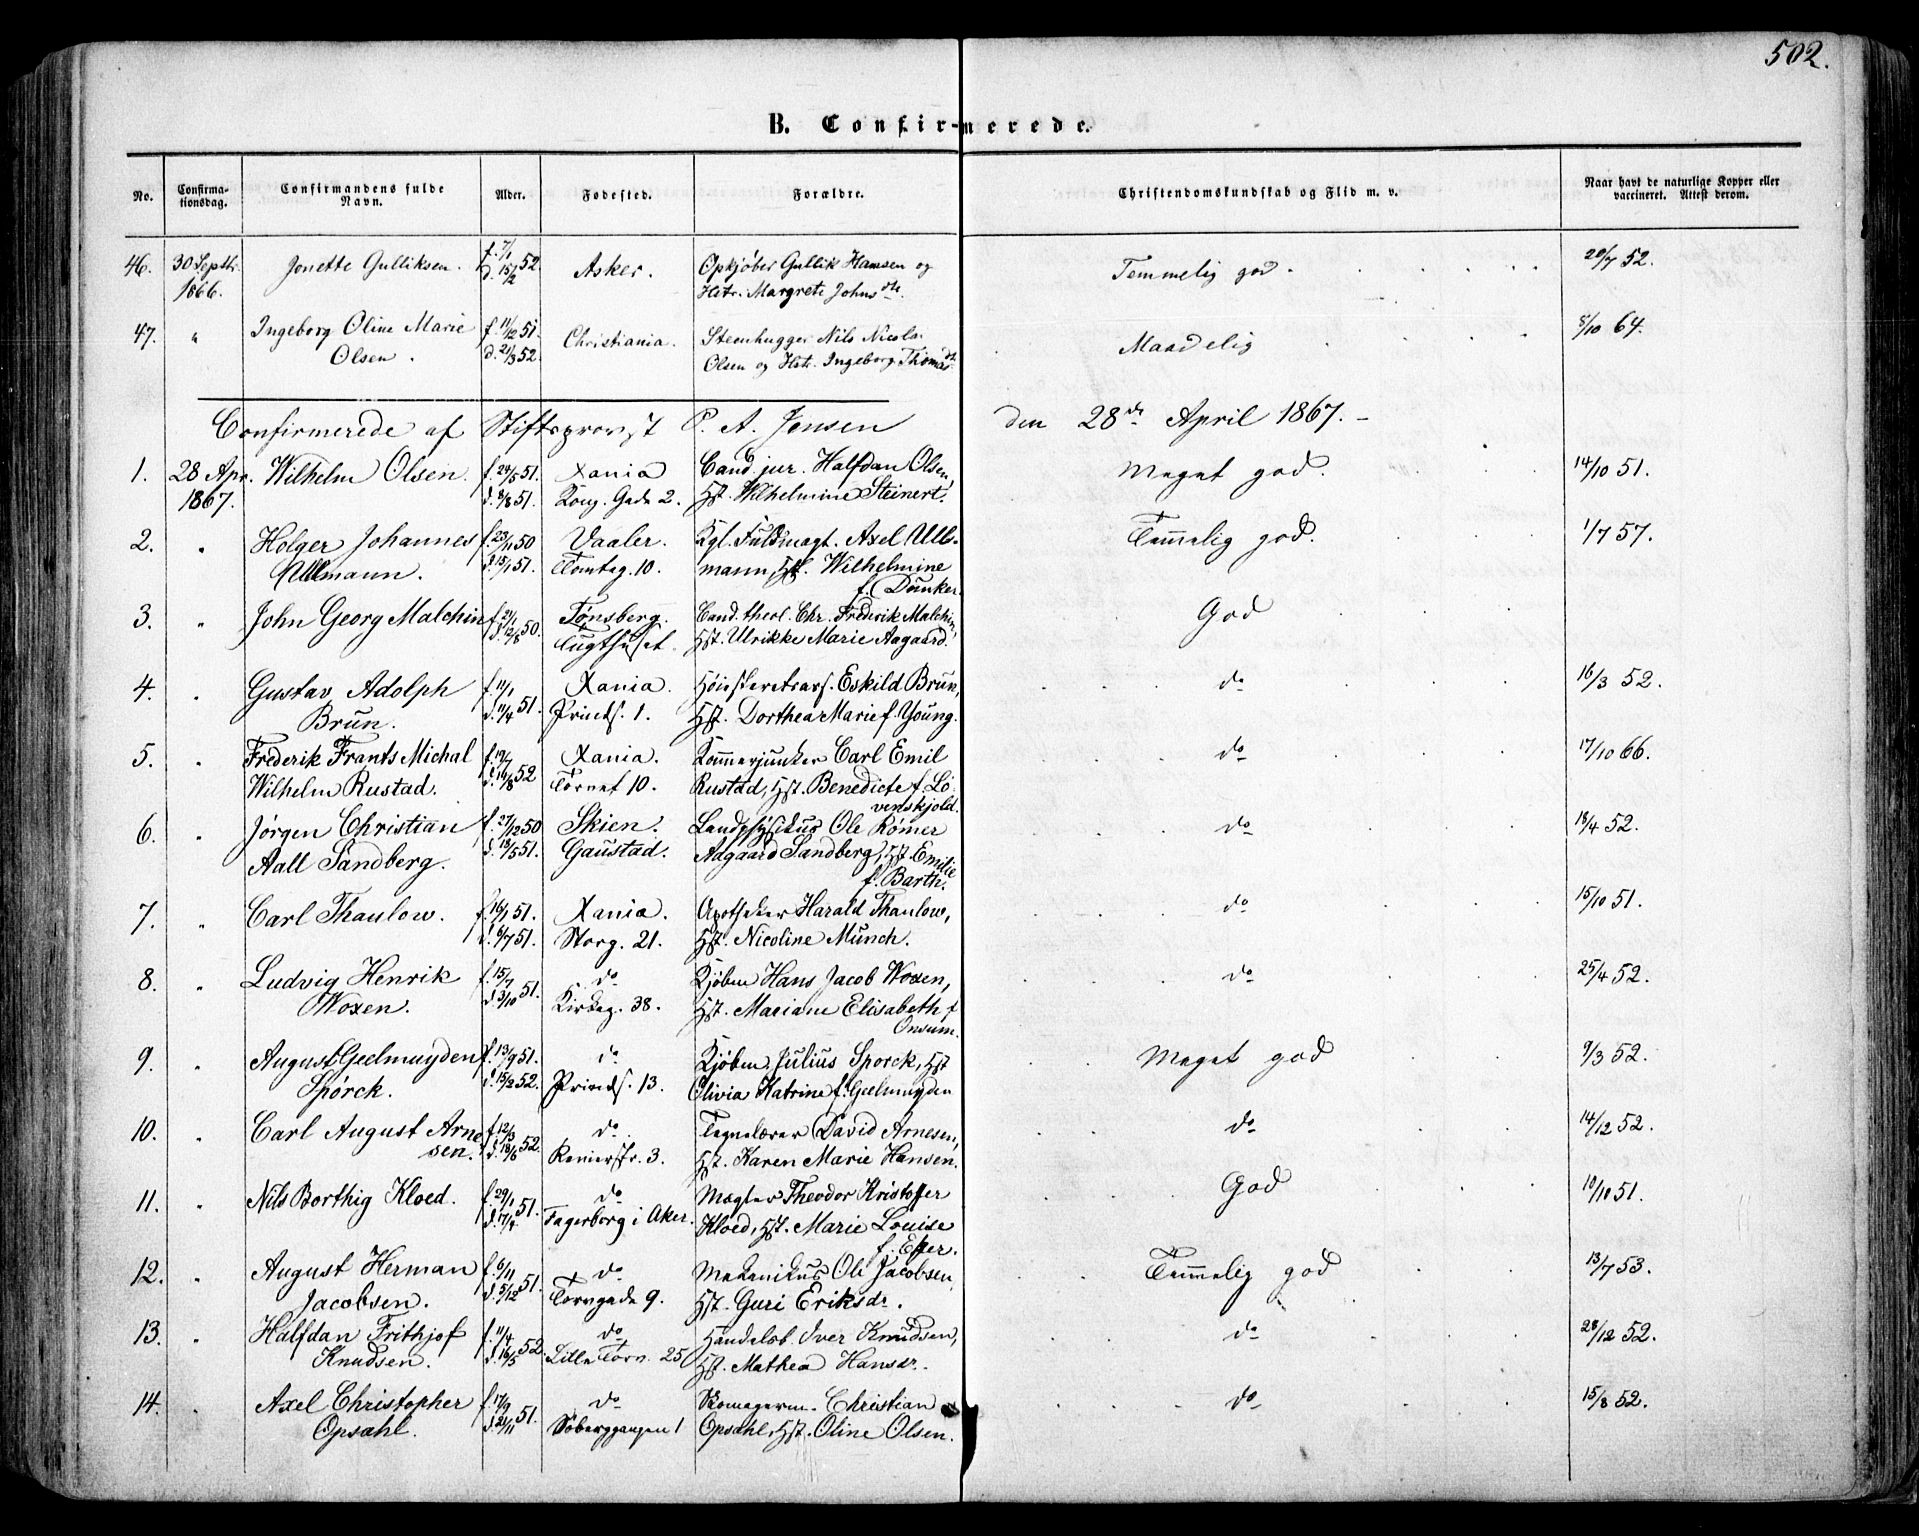 502.
B. Confirmerede.
No. Confirmationsdag. Confirmandens fulde Navn. Alder. Fødested. Forældre. Christendomskundskab og Flid m. v. Naar havt de naturlige Kopper eller vaccineret. Attest derom.
46. 30 Septbr. Jonette Gulliksen. f. 7/1 52. Asker. Opkjøber Gullik Hansen og Temmelig god. 20/7 52.
1866. d. 15/2 Hstr. Margrete Johnsdtr.
47. " Ingeborg Oline Marie f. 11/12 51. Christiania. Steenhugger Nils Nicolai Maadelig 8/10 64.
Olsen. d. 21/3 52. Olsen og Hstr. Ingeborg Thomasdtr.
Confirmerede af Stiftsprovst P. A. Jensen den 28de April 1867.-
1. 28 Apr. Wilhelm Olsen. f. 24/5 51. Xania Cand. jur. Halfdan Olsen, Meget god. 14/10 51.
1867. d. 8/8 51. Kong. Gade 2. Hst. Wilhelmine Steinert.
2. " Holger Johannes f. 23/11 50 Vaaler. Kgl. Fuldmægt. Axel Ull- Temmelig god. 1/7 57.
Ullmann. d. 15/1 51. Tomteg. 10. mann, Hst. Wilhelmine
f. Dunker.
3. " John Georg Malchin f. 21/1 50. Tønsberg. Cand. theol. Chr. Frederik Malchin, God
d. 12/8 Tugthuset. Hst. Ulrikke Marie Aagaard.
4. " Gustav Adolph f. 11/1 51. Xania. Høiesteretsass. Eskild Brun, do 16/3 52.
Brun. d. 11/4 Prinds. 1. Hst. Dorthea Marie f. Young.
5. " Frederik Frants Michal f. 19/7 52 Xania. Kammerjunker Carl Emil do 17/10 66.
Wilhelm Rustad. d. 14/8 Torvet 10. Rustad, Hst. Benedicte f. Lø-
venskjold.
6. " Jørgen Christian f. 27/12 50 Skien. Landphysikus Ole Rømer do 18/4 52.
Aall Sandberg. d. 18/5 51. Gaustad. Aagaard Sandberg, Hst. Emilie
f. Barth.
7. " Carl Thaulow. f. 16/1 51. Xania. Apotheker Harald Thaulow, do 15/10 51.
d. 6/7 51. Storg. 21. Hst. Nicoline Munch.
8. " Ludvig Henrik f. 15/7 51. do Kjøbm Hans Jacob Woxen, do 25/4 52.
Woxen. d. 3/10 Kirkeg. 38. Hst. Mariane Elisabeth f
Onsum.
9. " August Geelmuyden f. 13/9 51. do Kjøbm Julius Sporck, Hst Meget god 9/3 52.
Spörck. d. 15/2 52. Prinds. 13. Olivia Katrine f. Geelmuyden
10. " Carl August Arne- f. 12/3 52. do Tegnelærer David Arnesen, do 14/12 52.
sen. d. 18/6 3. Hst. Karen Marie Hansen.
11. " Nils Borthig Kloed. f. 29/1 51. do Mægler Theodor Kristoffer God 10/10 51.
d. 17/4 Fagerborg i Aker. Kloed, Hst. Marie Louise
f. Esser.
12. " August Herman f. 6/11 51. do Mekanikus Ole Jacobsen, Temmelig god 13/7 53.
Jacobsen. d. 5/12 Torvgade 9. Hst. Guri Eriksdr.
13. " Halfdan Frithjof f. 11/4 52. do Handelsb. Iver Knudsen, do 28/12 52.
Knudsen. d. 16/5 Lille Torv. 25 Hst. Mathea Hansdr.
14. " Axel Christopher f. 17/9 51. do Skomagerm. Christian do 15/8 52.
Opsahl. d. 21/11 1 Opsahl, Hst. Oline Olsen.